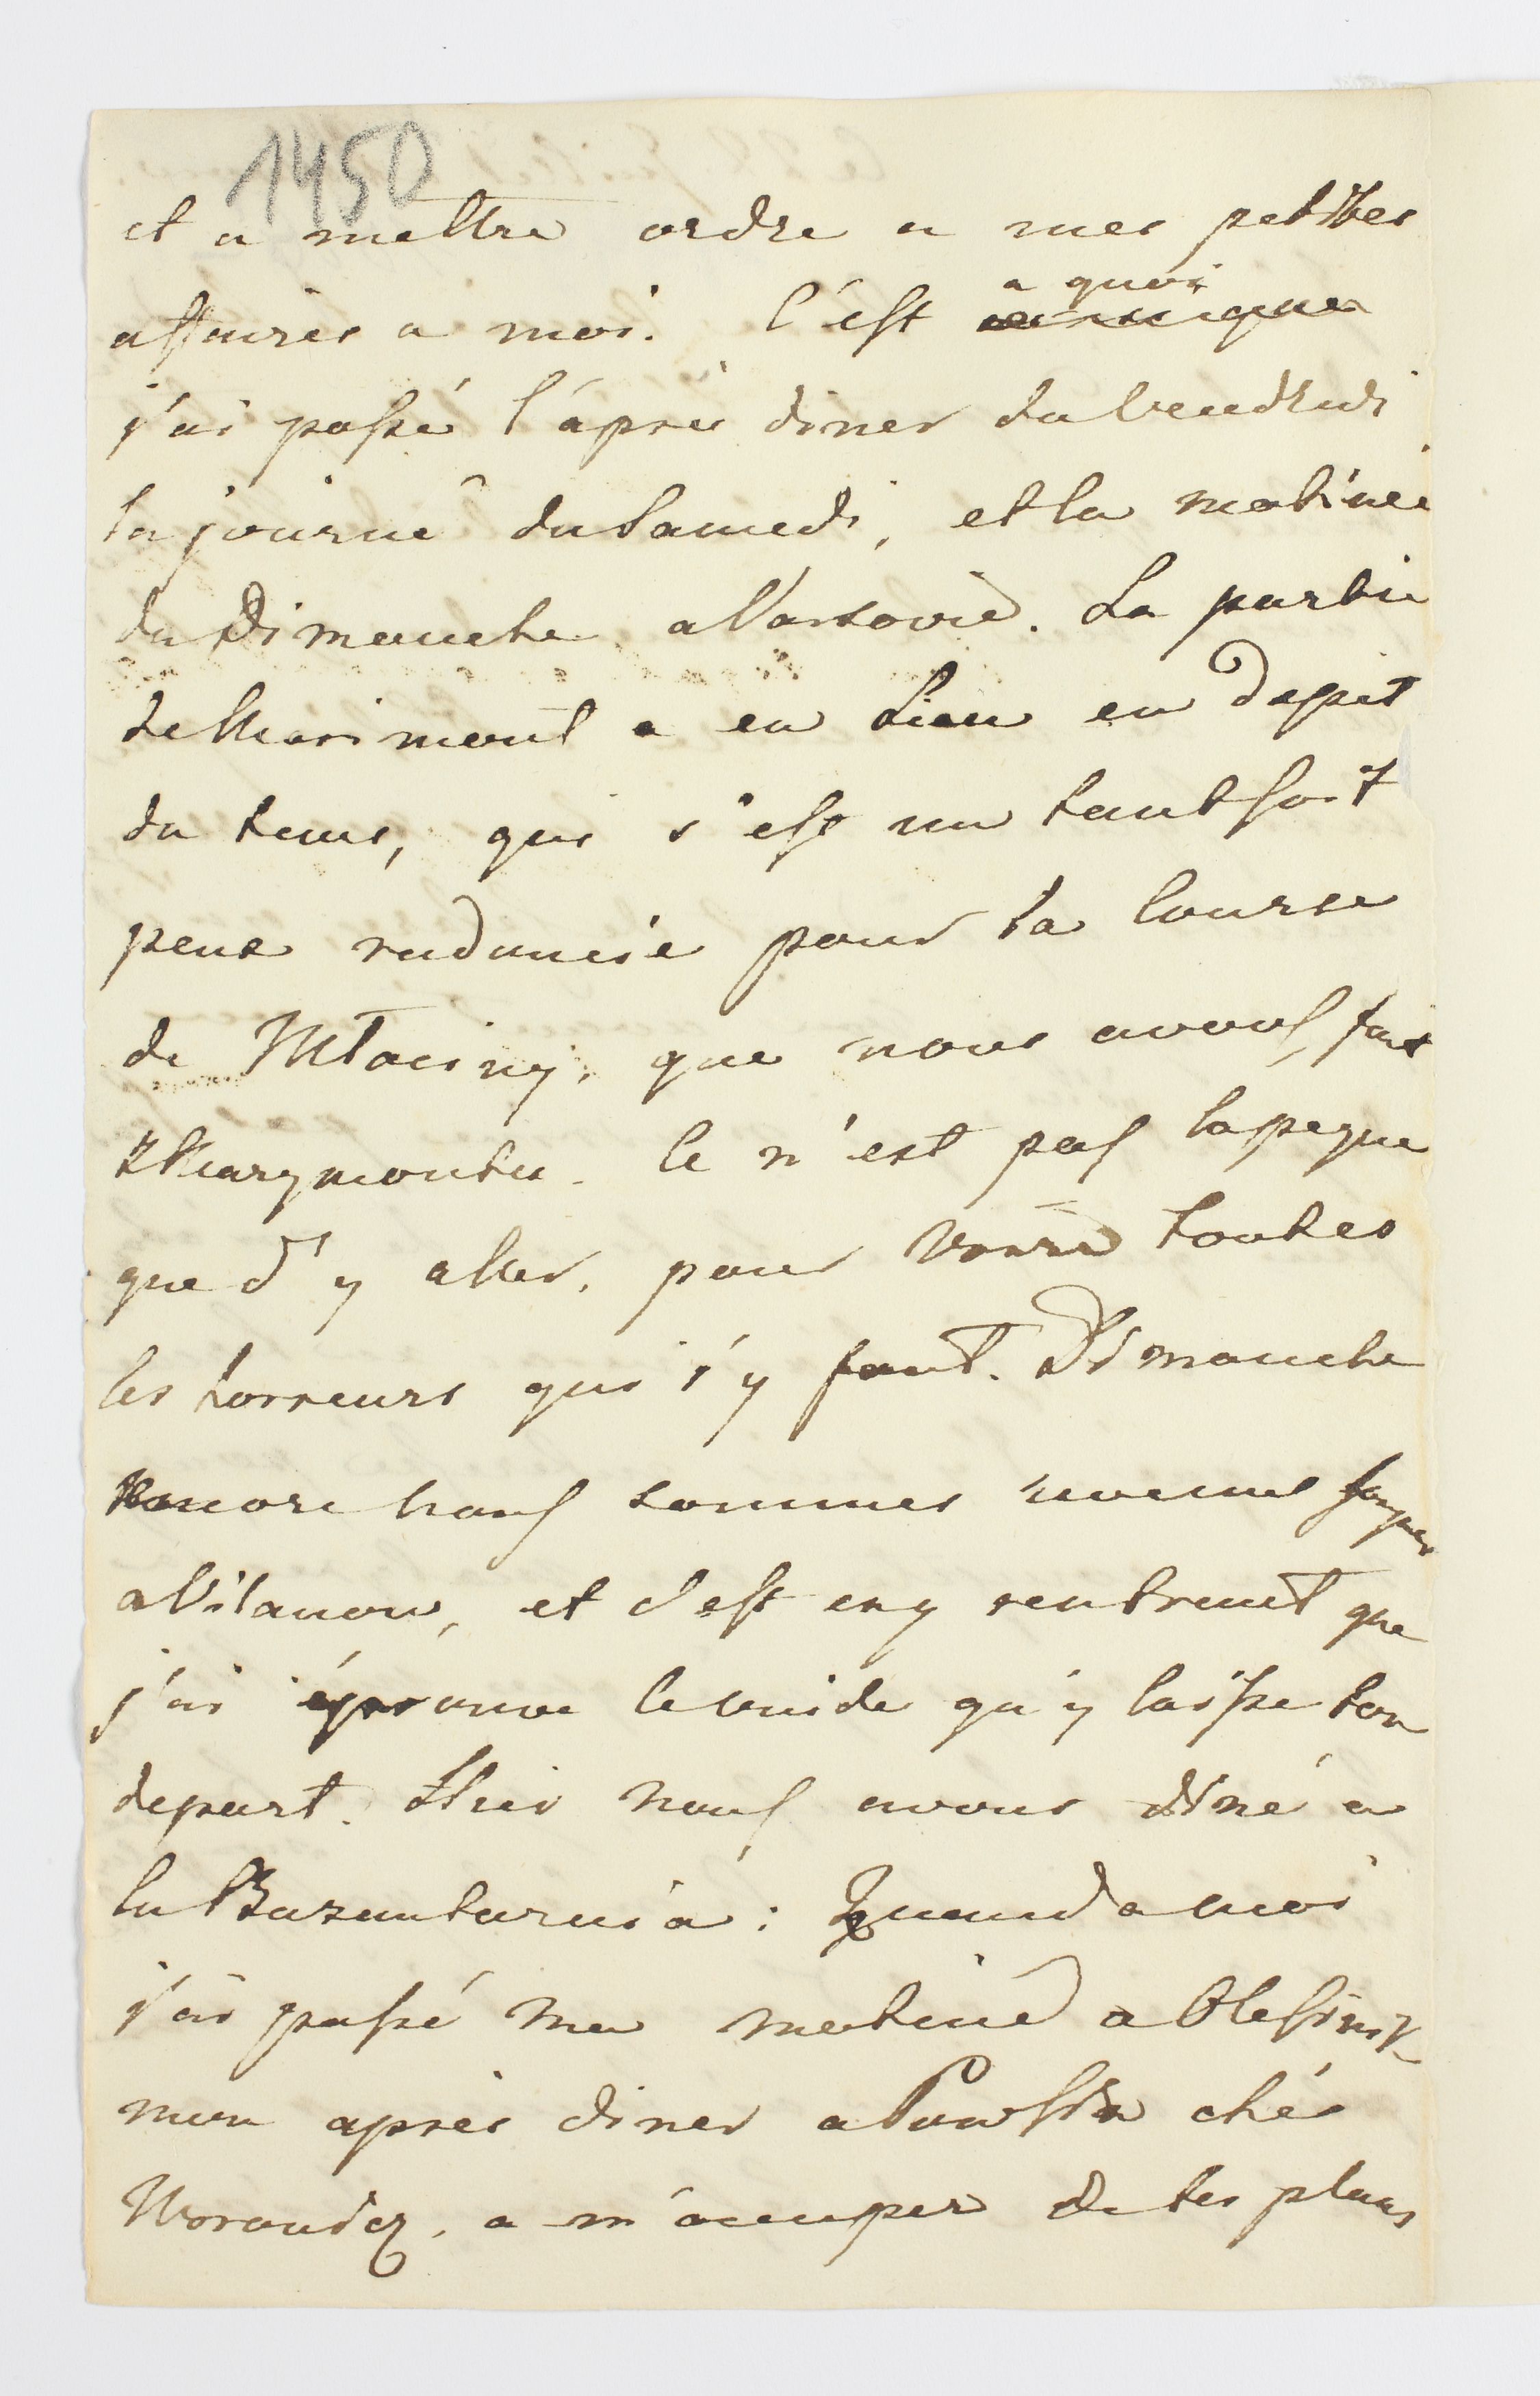 1450
et a mettre ordre a mes petites
affaires a moi. C'est a quoi
j'ai passé l'áprés diner du Vendredi
la journé du Samedi, et la matinée
du Dimanche a Varsovie. La partie
de Marimont a eu Lieu en depit
du tems, qui s'est un tantsoit
peux radoucie pour la Course
de Młociny, que nous avons fait
z Marymontu. Ce n'est pas la peine
que d'y aller, pour voire toutes
les horreurs qui s'y font. Dimanche
encore nous sommes revenus souper
a Vilanow, et c'est en y rentrant que
j'ai éprouvé le vuide qu'y laisse ton
depart. Hier nous avons diné a
la Bazantarnia: Quand a moi
j'ai passé ma matiné a
mon aprés diner a Powsin chés
a m'ócuper de tes plans